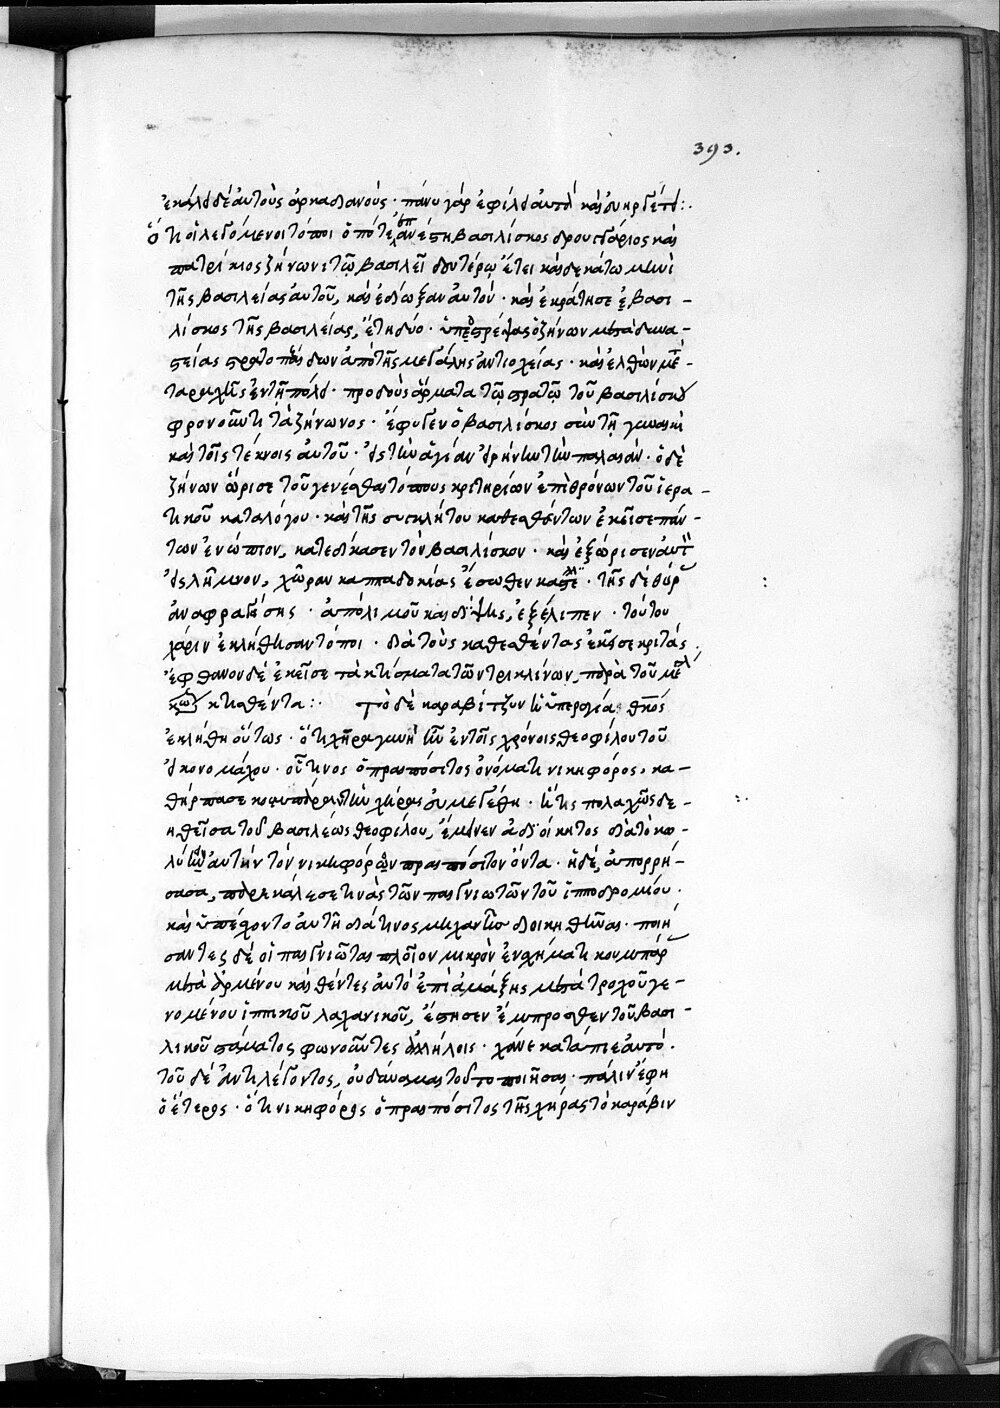 393.
ἐκάλει δὲ αὐτοὺς ἀρκαδιανούς · πάνυ γὰρ ἐφίλει αὐτοὺς καὶ εὐηργέτει :.
ὅτι οἱ λεγόμενοι τόποι ὁπόταν ἐπανέστη βασιλίσκος δρουγγάριος καὶ
πατρίκιος ζήνωνι τῷ βασιλεῖ δευτέρῳ ἔτει καὶ δεκάτῳ μηνὶ
τῆς βασιλείας αὐτοῦ, καὶ ἐδίωξαν αὐτόν · καὶ ἐκράτησε ὁ βασι-
λίσκος τῆς βασιλείας, ἔτη δύο · ὑπέστρεψας ὁ ζήνων μετὰ δυνα-
στείας στρατοπέδων ἀπὸ τῆς μεγάλης ἀντιοχείας · καὶ ἐλθὼν με-
ταραχῆς ἐν τῇ πόλει · προδοὺς ἅρματα τῷ στρατῷ τοῦ βασιλίσκου
φρονοῦντι τὰ ζήνωνος · ἔφυγεν ὁ βασιλίσκος σὺν τῇ γυναικὶ
καὶ τοῖς τέκνοις αὐτοῦ · εἰς τὴν ἁγίαν εἰρήνην τὴν παλαιάν · ὁ δὲ
ζήνων ὥρισε τοῦ γενέσθαι τόπους κριτηρίων ἐπὶ θρόνων τοῦ ἱερα-
τικοῦ καταλόγου · καὶ τῆς συγκλήτου καθεσθέντων ἐκεῖσε πάν-
των ἐνώπιον, κατεδίκασεν τὸν βασιλίσκον · καὶ ἐξώρισεν αὐτὸν
εἰς λῆμνον, χῶραν καππαδοκίας ἔσωθεν · τῆς δὲ θύρ
ἀναφραγείσης · ἀπὸ λιμοῦ καὶ δίψης, ἐξέλιπεν · τούτου
χάριν ἐκλήθησαν τόποι · διὰ τοὺς καθεσθέντας ἐκεῖσε κριτάς
ἔφθανον δὲ ἐκεῖσε τὰ κτίσματα τῶν τρικλίνων, παρὰ τοῦ με
κω κτισθέντα :. τὸ δὲ καραβίτζιν ἡ ὑπεραγία θκος
ἐκλήθη οὕτως · ὅτι χήρα γυνὴ ἦν ἐν τοῖς χρόνοις θεοφίλου τοῦ
εἰκονομάχου · οὗτινος ὁ πραιπόσιτος ὀνόματι νικηφόρος, κα-
θήρπασε τὴν χήραν · ἥτις πολλαχῶς δε-
ηθεῖσα τοῦ βασιλέως θεοφίλου, ἔμεινεν ἀδιοίκητος διὰ τὸ κω-
λύειν αὐτὴν τὸν νικηφόρον πραιπόσιτον ὄντα · ἡ δὲ, ἀπορρή-
σασα, παρεκάλεσε τινὰς τῶν παιγνιωτῶν τοῦ ἱπποδρομίου ·
καὶ ὑπέσχοντο αὐτῇ διά τινος μηχανῆς διοικηθῆναι · ποιή
σαντες δὲ οἱ παιγνιῶται πλοῖον μικρὸν ἐν σχήματι κουμπάρ
μετὰ ἀρμένου καὶ θέντες αὐτὸ ἐπὶ ἁμάξης μετὰ τροχοῦ γε-
νομένου ἱππικοῦ λαχανικοῦ, ἔστησεν ἔμπροσθεν τοῦ βασι-
λικοῦ στάματος φωνοῦντες ἀλλήλοις · χάνε κατάπιε αὐτό ·
τοῦ δὲ ἀντιλέγοντος, οὐ δύναμαι τοῦτο ποιῆσαι · πάλιν ἔφη
ὁ ἕτερος · ὅτι νικηφόρος ὁ πραιπόσιτος τῆς χήρας τὸ καράβιν